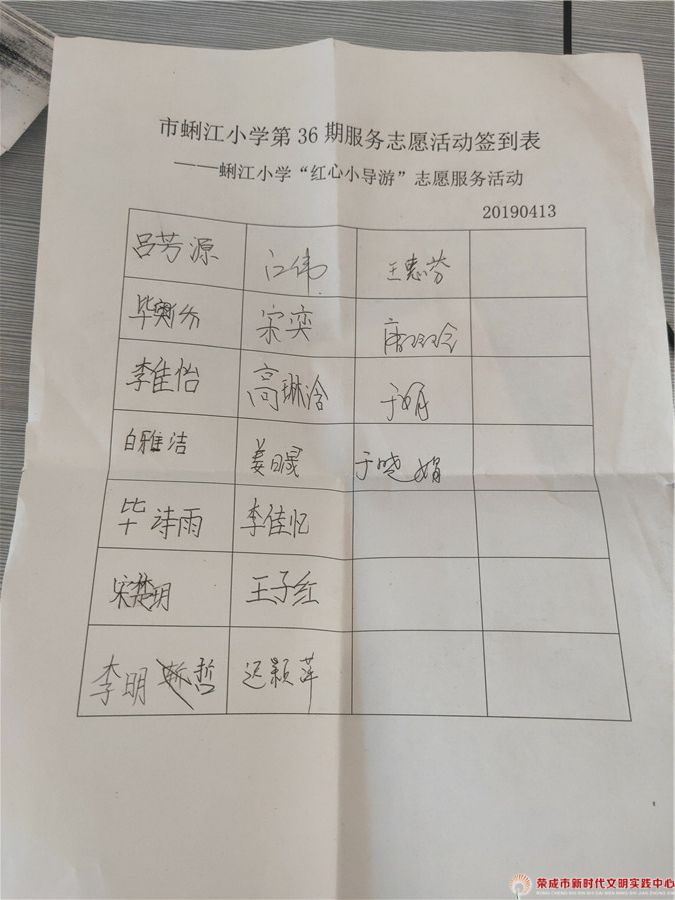 市蜊江小学第36期服务志愿活动签到表
——蜊江小学“红心小导游”志愿服务活动
20190413
吕芳源 江伟 王惠芬
宋奕
李佳怡 高琳涵 于娟
白雅洁 姜日晟 于晓娟
毕诗雨 李佳忆
宋楚玥 王子红
李明哲 迟颖萍
荣成市新时代文明实践中心